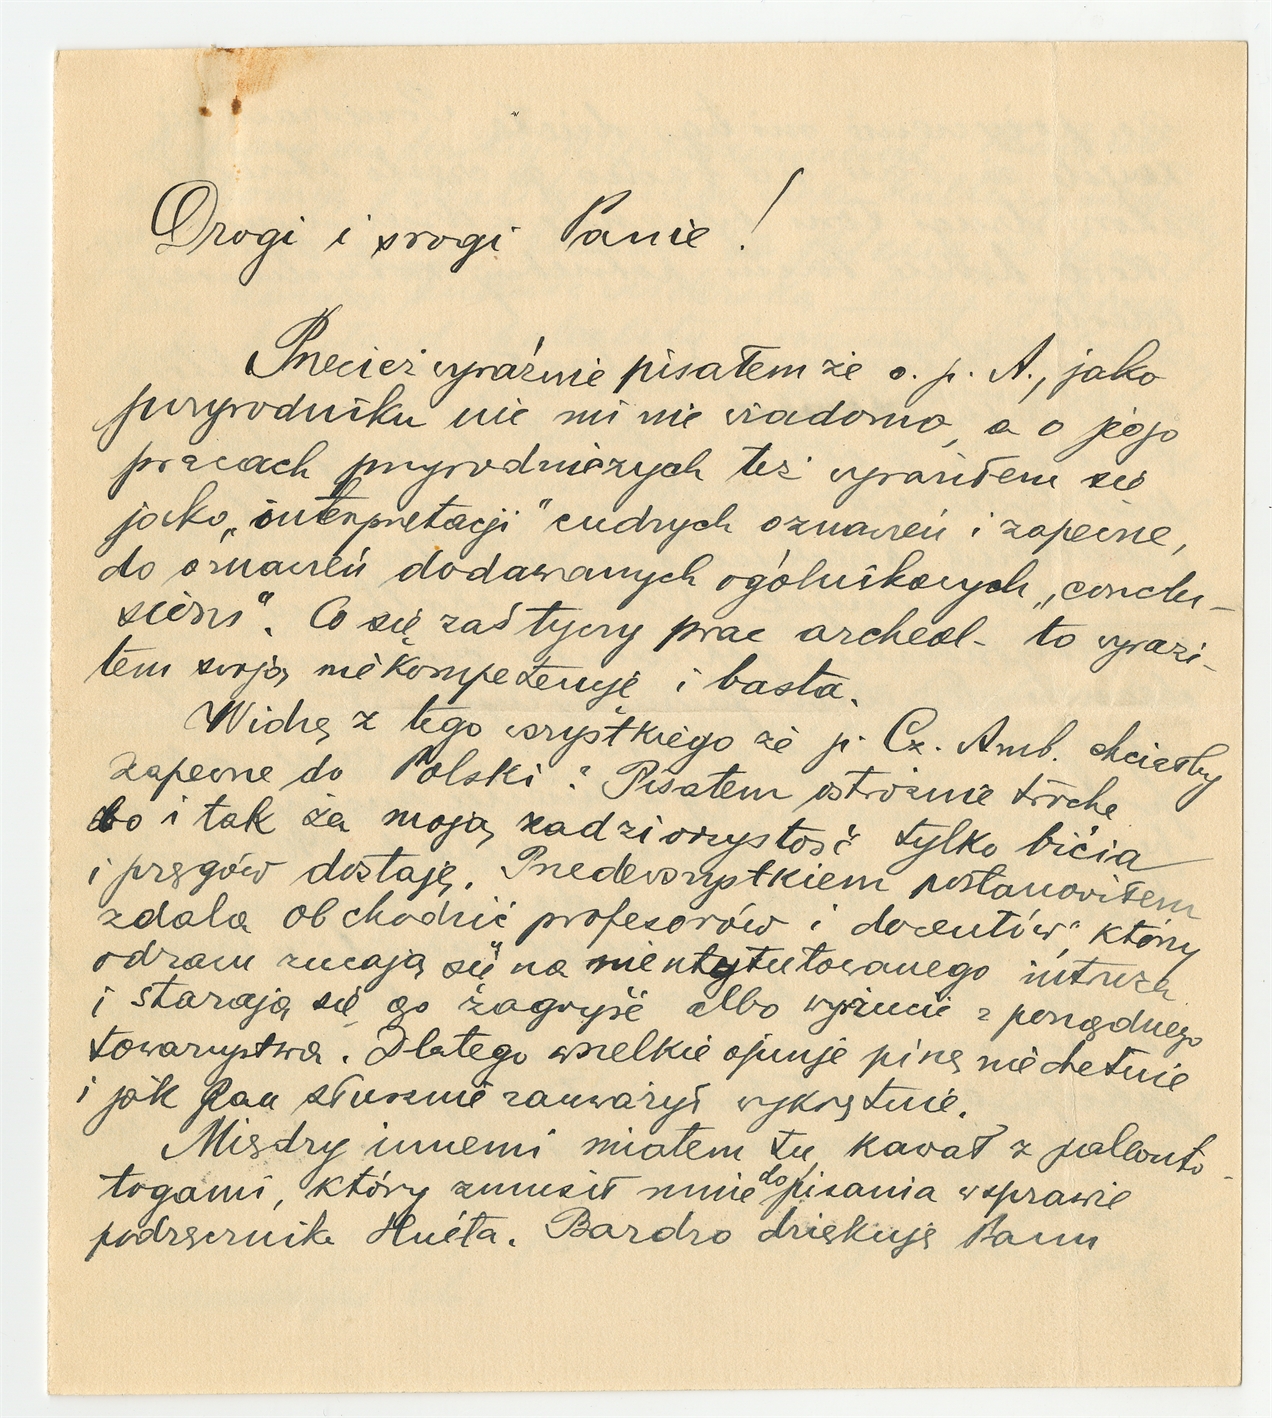 Drogi i srogi Panie!
Przecież wyraźnie pisałem że o. p. A., jako
przyrodniku nic mi nie wiadomo, a o jego
pracach przyrodniczych też wyraziłem się
jako „interpretacji" cudzych oznaczeń i zapewne,
do oznaczeń dodawanych ogólnikowych „conclu-
sions". Co się zaś tyczy prac archeol- to wyrazi-
łem swoją niekompetencję i basta.
Widzę z tego wszystkiego że p. Cz. Amb. chciałby
zapewne do Polski? Pisałem ostrożnie trochę
bo i tak za moją zadziorzystość tylko bicia
i pręgów dostaję. Przedewszystkiem postanowiłem
zdala obchodzić profesorów i docentów, którzy
odrazu rzucają się na nieutytułowanego intruza
i starają się go zagryść albo wyrzucić z porządnego
towarzystwa. Dlatego wszelkie opinje piszę niechętnie
i jak Pan słusznie zauważył wykrętnie.
Między innemi miałem tu kawał z paleonto-
logami, który zmusił mnie do pisania w sprawie
podręcznika Huéta. Bardzo dziękuję Panu